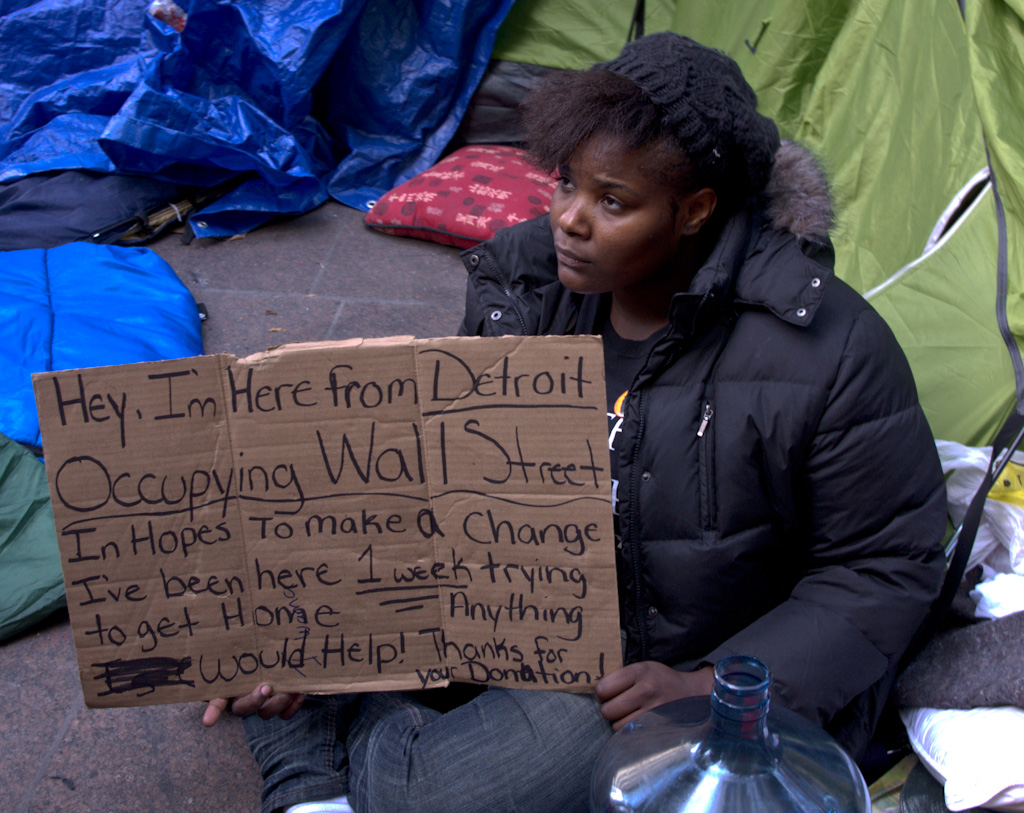 Hey, I'm Here from Detroit
Occupying Wall Street
In Hopes To make a Change
I've been here 1 week trying
to get Home Anything
would Help! Thanks for
your Donation!